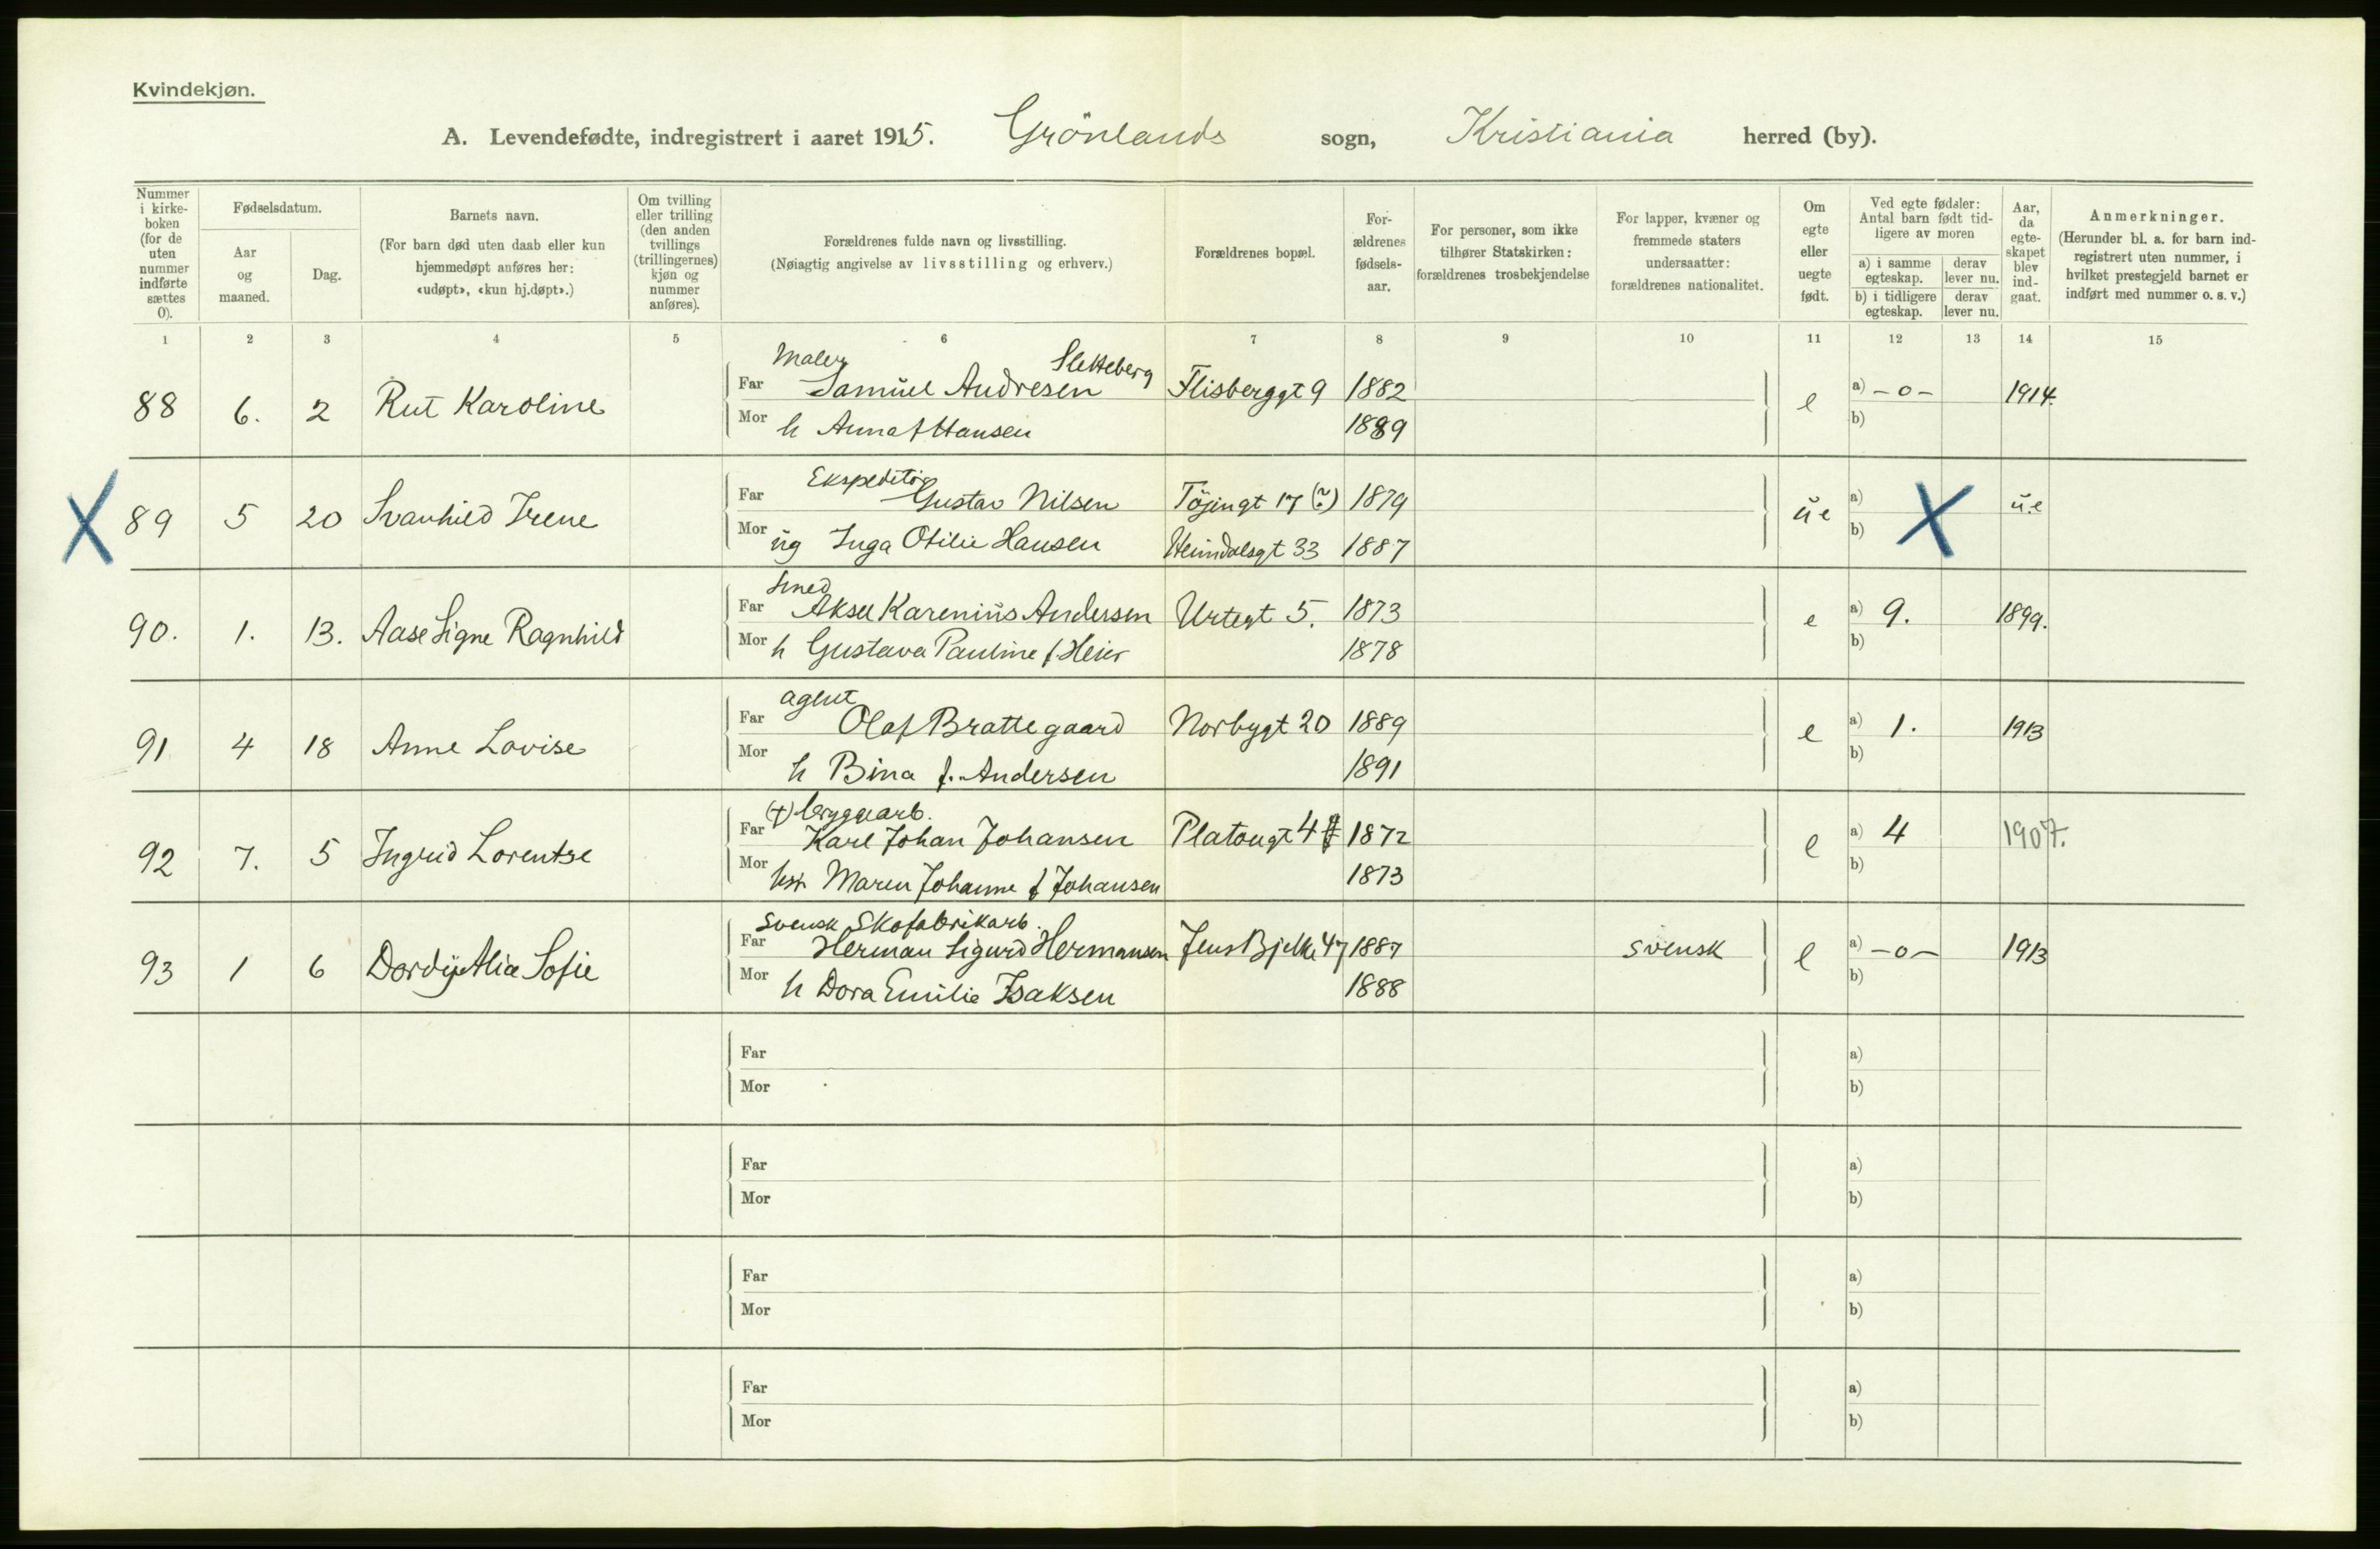 Kvindekjøn.
A. Levendefødte, indregistrert i aaret 1915. Grönlands sogn, Kristiania herred (by).
Nummer i kirke-boken (for de uten nummer indførte sættes 0).
Fødselsdatum.
Aar og maaned.
Dag.
Barnets navn.
(For barn død uten daab eller kun hjemmedøpt anføres her: «udøpt», «kun hj.døpt».)
Om tvilling eller trilling (den anden tvillings (trillingernes) kjøn og nummer anføres).
Forældrenes fulde navn og livsstilling.
(Nøiagtig angivelse av livsstilling og erhverv.)
Forældrenes bopæl.
For-ældrenes fødsels-aar.
For personer, som ikke tilhører Statskirken: forældrenes trosbekjendelse
For lapper, kvæner og fremmede staters undersaatter: forældrenes nationalitet.
Om egte eller uegte født.
Ved egte fødsler: Antal barn født tid-ligere av moren
a) i samme egteskap.
derav lever nu.
b) i tidligere egteskap.
derav lever nu.
Aar, da egte-skapet blev ind-gaat.
Anmerkninger.
(Herunder bl. a. for barn ind-registrert uten nummer, i hvilket prestegjeld barnet er indført med nummer o. s. v.)
1 2 3 4 5 6 7 8 9 10 11 12 13 14 15
Maler Sletteberg
88 6. 2 Rut Karoline Far Samuel Andresen Flisberggt 9 1882 e a) -0- 1914.
Mor h Anna f Hansen 1889 b)
Ekspeditör
X 89 5 20 Svanhild Irene Far Gustav Nilsen Töjengt 17 (?) 1879 ue a) X u.e
Mor ug Inga Otilie Hansen Heimdalsgt 33 1887 b)
Smed
90. 1. 13. Aase Signe Ragnhild Far Aksel Karenius Andersen Urtegt 5. 1873 e a) 9. 1899.
Mor h Gustava Pauline f. Heier 1878 b)
agent
91 4 18 Anne Lovise Far Olaf Brattegaard Norbygt 20 1889 e a) 1. 1913
Mor h Bina f. Andersen 1891 b)
(+) bryggearb.
92 7. 5 Ingrid Lorentse Far Karl Johan Johansen Platougt 4 1872 e a) 4 1907.
Mor Maren Johanne f Johansen 1873 b)
svensk Skofabrikarb.
93 1 6 Alice Sofie Far Herman Sigurd Hermansen Jens Bjelke 47 1887 svensk e a) -0- 1913
Mor h Dora Emilie Isaksen 1888 b)
Far a)
Mor b)
Far a)
Mor b)
Far a)
Mor b)
Far a)
Mor b)